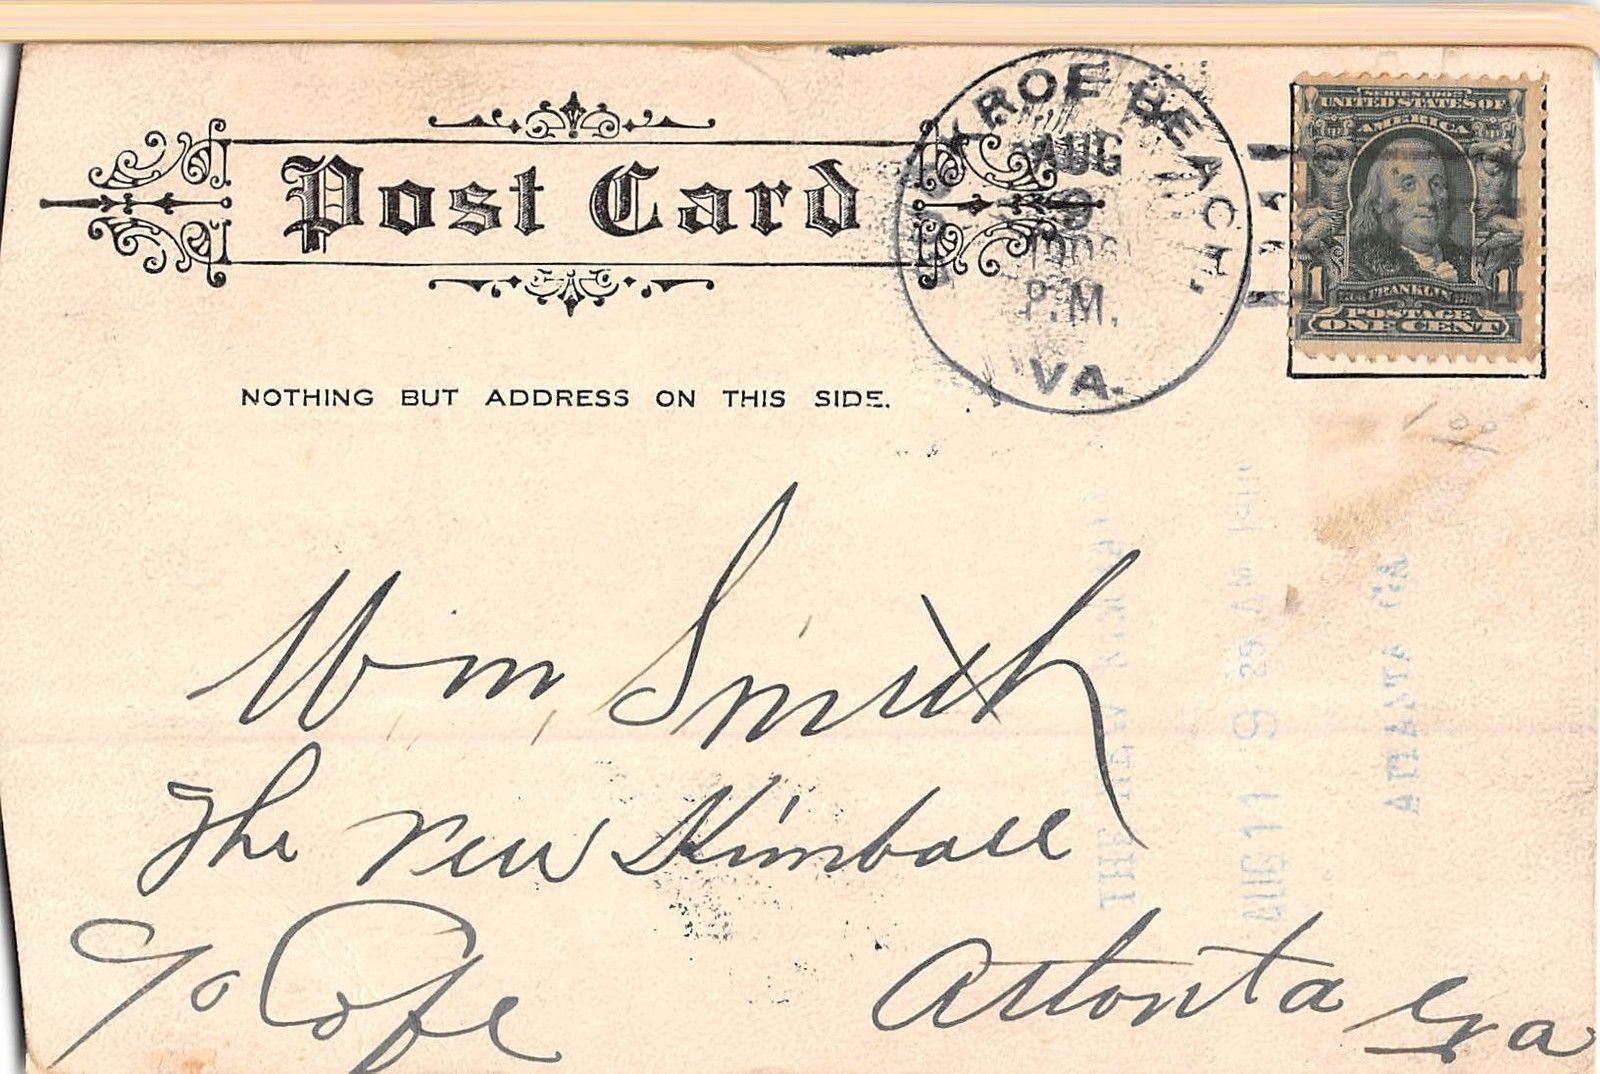 Post Card
BUCKROE BEACH,
AUG
9
1906
P.M.
VA.
SERIES 1902
UNITED STATES OF
AMERICA
1 FRANKLIN 1
POSTAGE
ONE CENT
NOTHING BUT ADDRESS ON THIS SIDE.
Wm Smith
The New Kimball
c/o Cafe
Atlanta Ga
THE NEW KIMBALL
AUG 11 9 29 AM 1906
ATLANTA GA